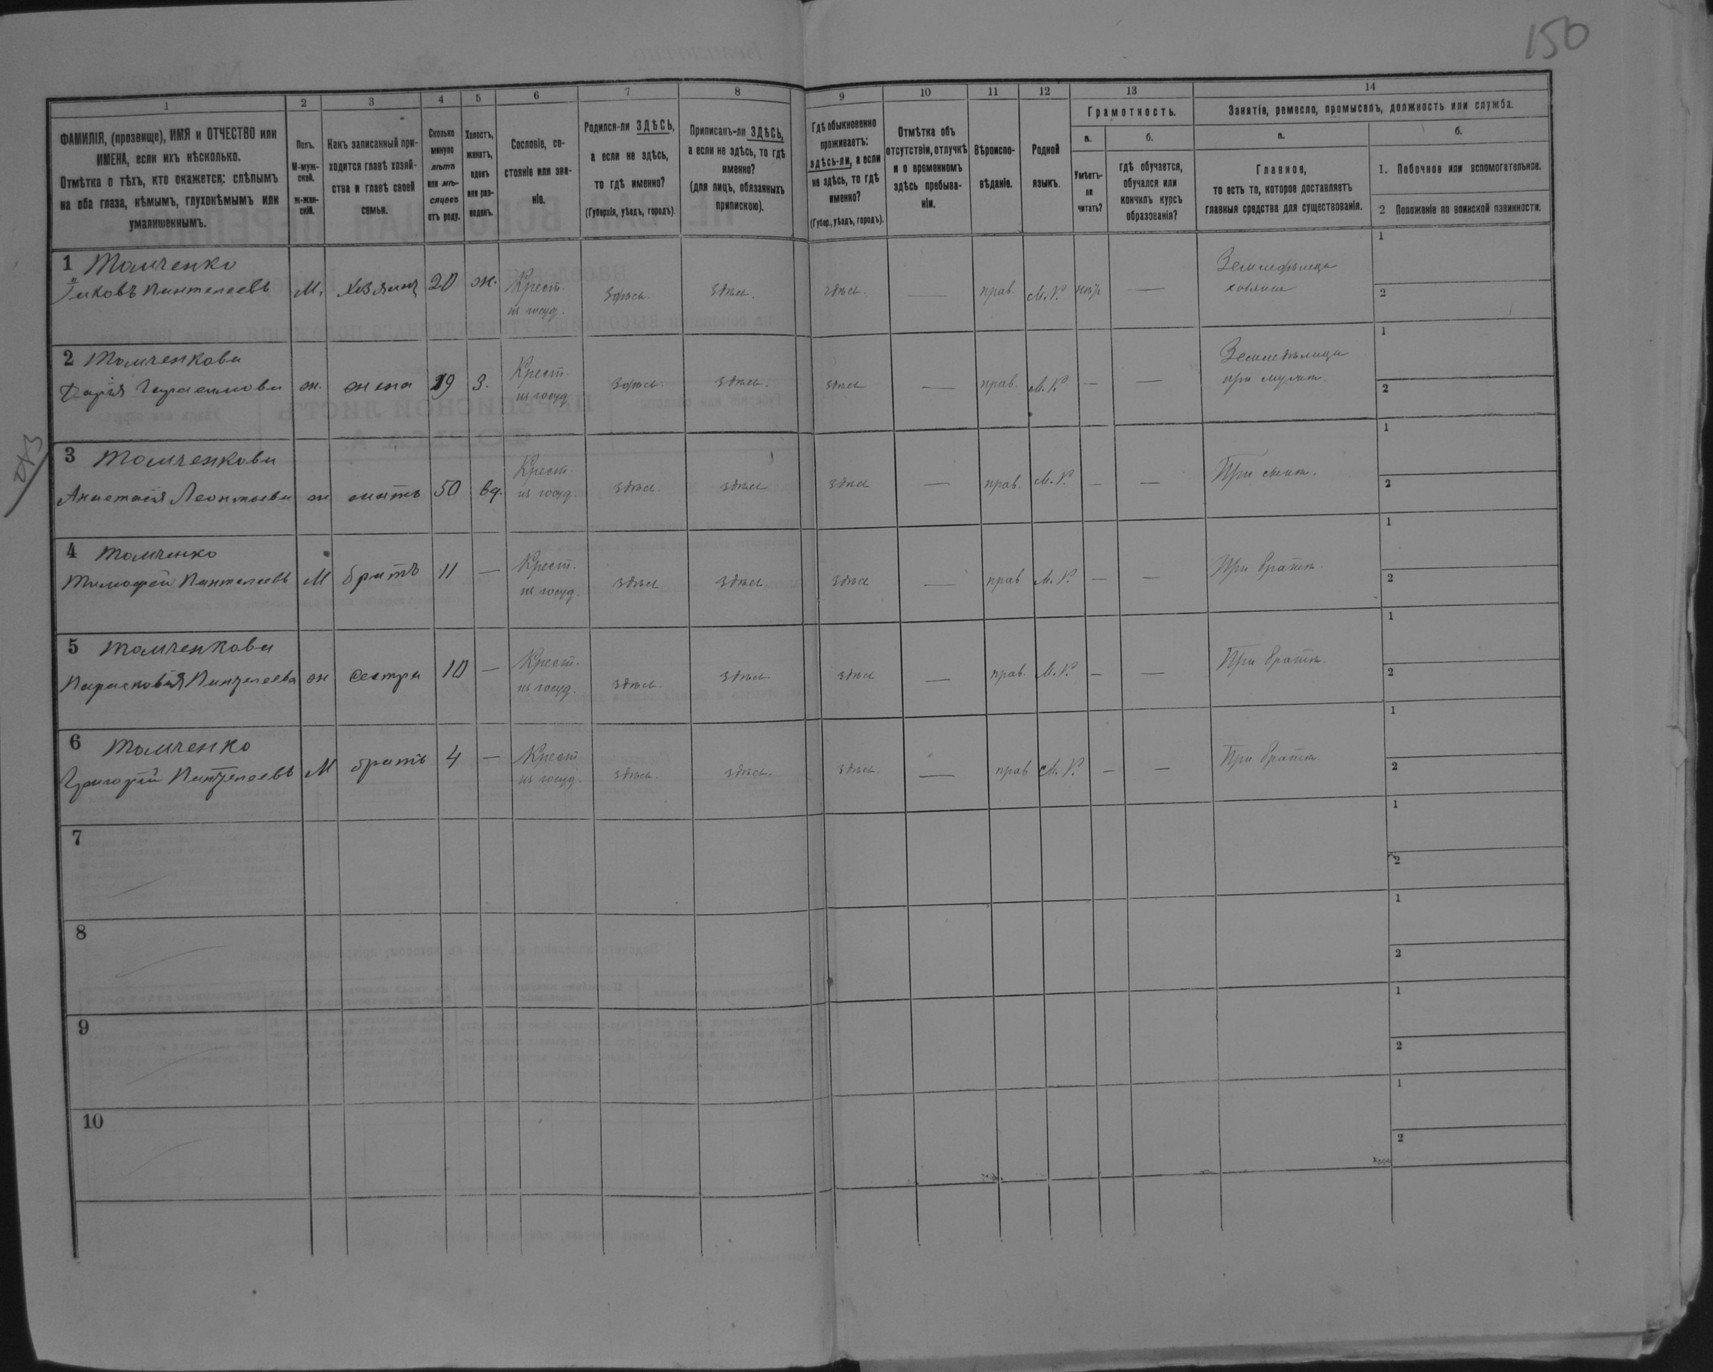 150
1 2 3 4 5 6 7 8 9 10 11 12 13 14
ФАМИЛІЯ, (прозвище), ИМЯ и ОТЧЕСТВО или
ИМЕНА, если ихъ нѣсколько.
Отмѣтка о тѣхъ, кто окажется: слѣпымъ
на оба глаза, нѣмымъ, глухонѣмымъ или
умалишеннымъ.
Полъ.
М-муж-
ской.
ж-жен-
скій.
Какъ записанный при-
ходится главѣ хозяй-
ства и главѣ своей
семьи.
Сколько
минуло
лѣтъ
или мѣ-
сяцевъ
отъ роду.
Холостъ,
женатъ,
вдовъ
или раз-
веденъ.
Сословіе, со-
стояніе или зва-
ніе.
Родился-ли ЗДѢСЬ,
а если не здѣсь,
то гдѣ именно?
(Губернія, уѣздъ, городъ)
Приписанъ-ли ЗДѢСЬ,
а если не здѣсь, то гдѣ
именно?
(для лицъ, обязанныхъ
припискою).
Гдѣ обыкновенно
проживаетъ:
здѣсь-ли, а если
не здѣсь, то гдѣ
именно?
(Губер., уѣздъ, городъ).
Отмѣтка объ
отсутствіи, отлучкѣ
и о временномъ
здѣсь пребыва-
ніи.
Вѣроиспо-
вѣданіе.
Родной
языкъ.
Грамотность.
а. б.
Умѣетъ-
ли
читать?
гдѣ обучается,
обучался или
кончилъ курсъ
образованія?
Занятіе, ремесло, промыселъ, должность или служба.
а. б.
Главное,
то есть то, которое доставляетъ
главныя средства для существованія.
1. Побочное или вспомогательное.
2 Положеніе по воинской повинности.
1 Томченко
Яковъ Пантелеевъ М. хозяинъ 20 ж. Крест. здѣсь. здѣсь. здѣсь. — прав. М.Р. нѣтъ — Земледѣлецъ 1
из госуд. хозяинъ 2
2 Томченкова
Дарія Герасимова ж. жена 19 З. Крест. здѣсь здѣсь. здѣсь — прав. М.Р. — — Земледѣлица 1
из госуд. при мужѣ. 2
243
3 Томченкова
Анастасія Леонтьева ж мать 50 вд. Крест. здѣсь здѣсь здѣсь — прав. М.Р. — — При сынѣ. 1
из госуд. 2
4 Томченко
Тимофей Пантелеевъ М братъ 11 — Крест. здѣсь здѣсь. здѣсь — прав М.Р. — — При братѣ. 1
из госуд. 2
5 Томченкова
Парасковія Пантелеева ж сестра 10 — Крест. здѣсь. здѣсь. здѣсь — прав. М.Р. — — При братѣ 1
из госуд. 2
6 Томченко
Григорій Пантелеевъ М братъ 4 — Крест. здѣсь. здѣсь. здѣсь. — прав М.Р. — — При братѣ. 1
из госуд. 2
7 1
2
8 1
2
9 1
2
10 1
2